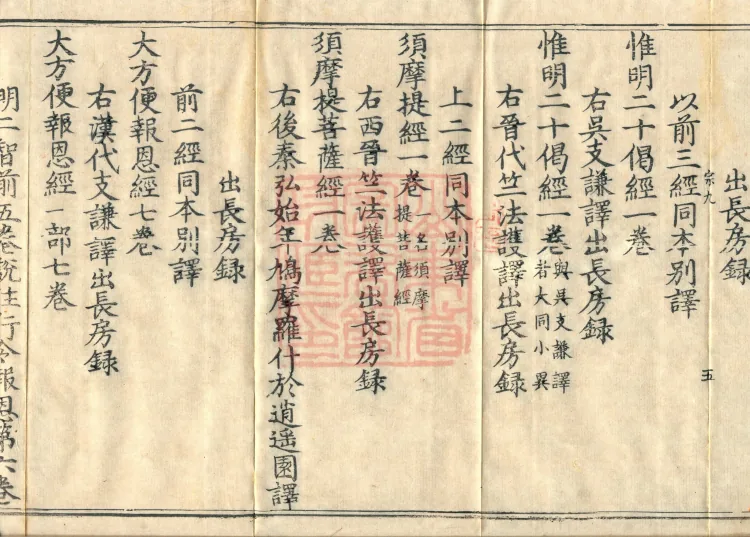 出長房録
以前三經同本別譯
宗九 五
惟明二十偈經一卷
右吳支謙譯出長房録
惟明二十偈經一卷與吳支謙譯
若大同小異
右晉代竺法護譯出長房録
上二經同本別譯
須摩提經一卷一名須摩
提菩薩經
右西晉竺法護譯出長房録
須摩提菩薩經一卷
右後秦弘始年鳩摩羅什於逍遥園譯
出長房録
前二經同本別譯
大方便報恩經七卷
右漢代支謙譯出長房録
大方便報恩經一部七卷
明二智前五卷說
報恩第六卷